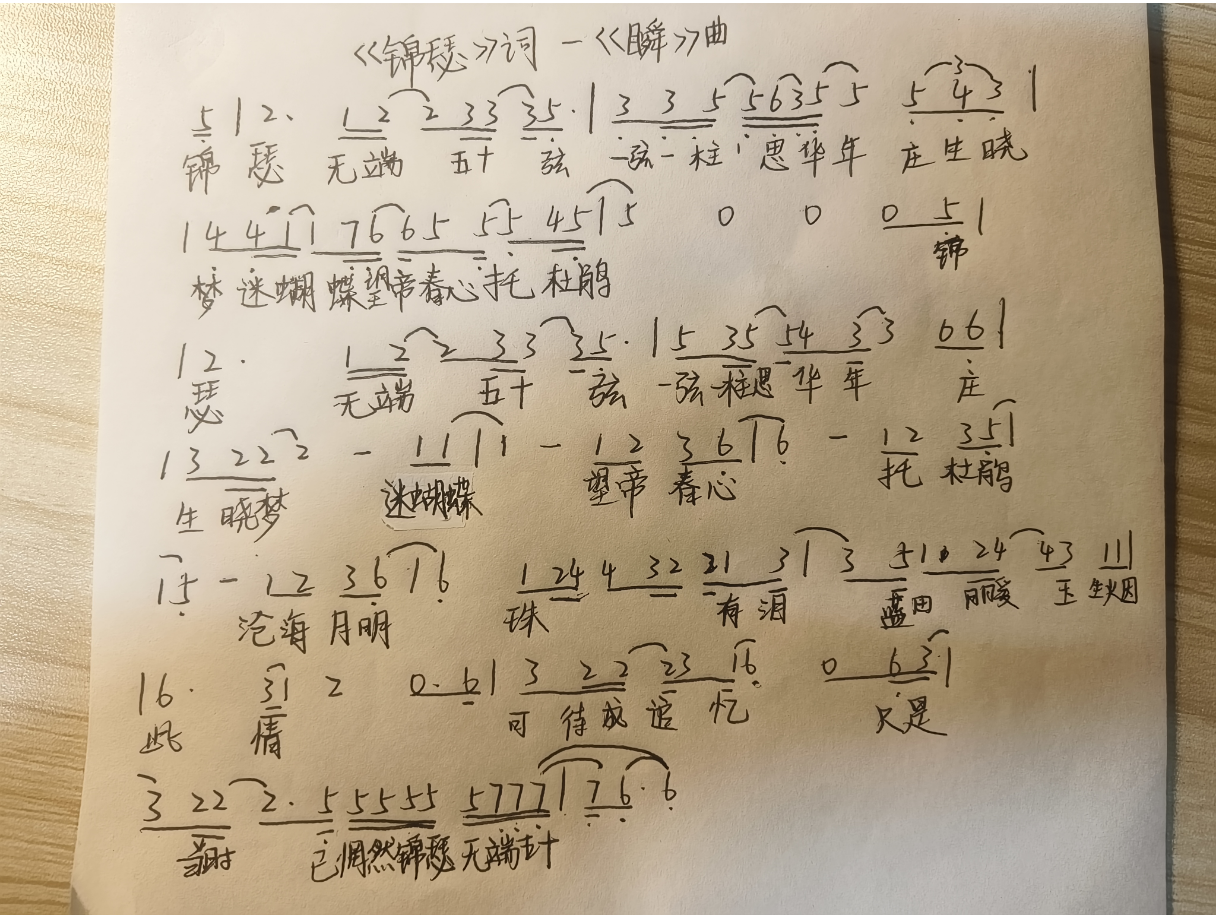 《锦瑟》词 — 《瞬》曲
5 | 2. 1 2 2 3 3 3 5. | 3 3 5 5 6 3 5 5 5 4 3 |
锦 瑟 无端 五十 弦 一弦一柱 思华年 庄生晓
| 4 4 1 | 1 7 6 6 5 5 5 4 5 | 5 0 0 0 5 |
梦 迷蝴 蝶望帝春心托 杜鹃 锦
| 2. 1 2 2 3 3 3 5. | 5 3 5 5 4 3 3 0 6 |
瑟 无端 五十 弦 一弦一柱思 华 年 庄
| 3 2 2 2 - 1 1 1 1 - 1 2 3 6 | 6 - 1 2 3 5 |
生 晓梦 迷蝴蝶 望帝 春心 托 杜鹃
| 5 - 1 2 3 6 | 6 1 2 4 4 3 2 2 1 3 | 3 5 1 2 4 4 3 1 1 |
沧海 月明 珠 有 泪 蓝田 日暖 玉 生烟
| 6. 3 1 2 0. 6 | 3 2 2 2 3 1 6 0 6 3 |
此 情 可 待成 追 忆 只是
3 2 2 2. 5 5 5 5 5 5 7 7 7 | 7 6. 6
当时 已惘然锦瑟 无端五十